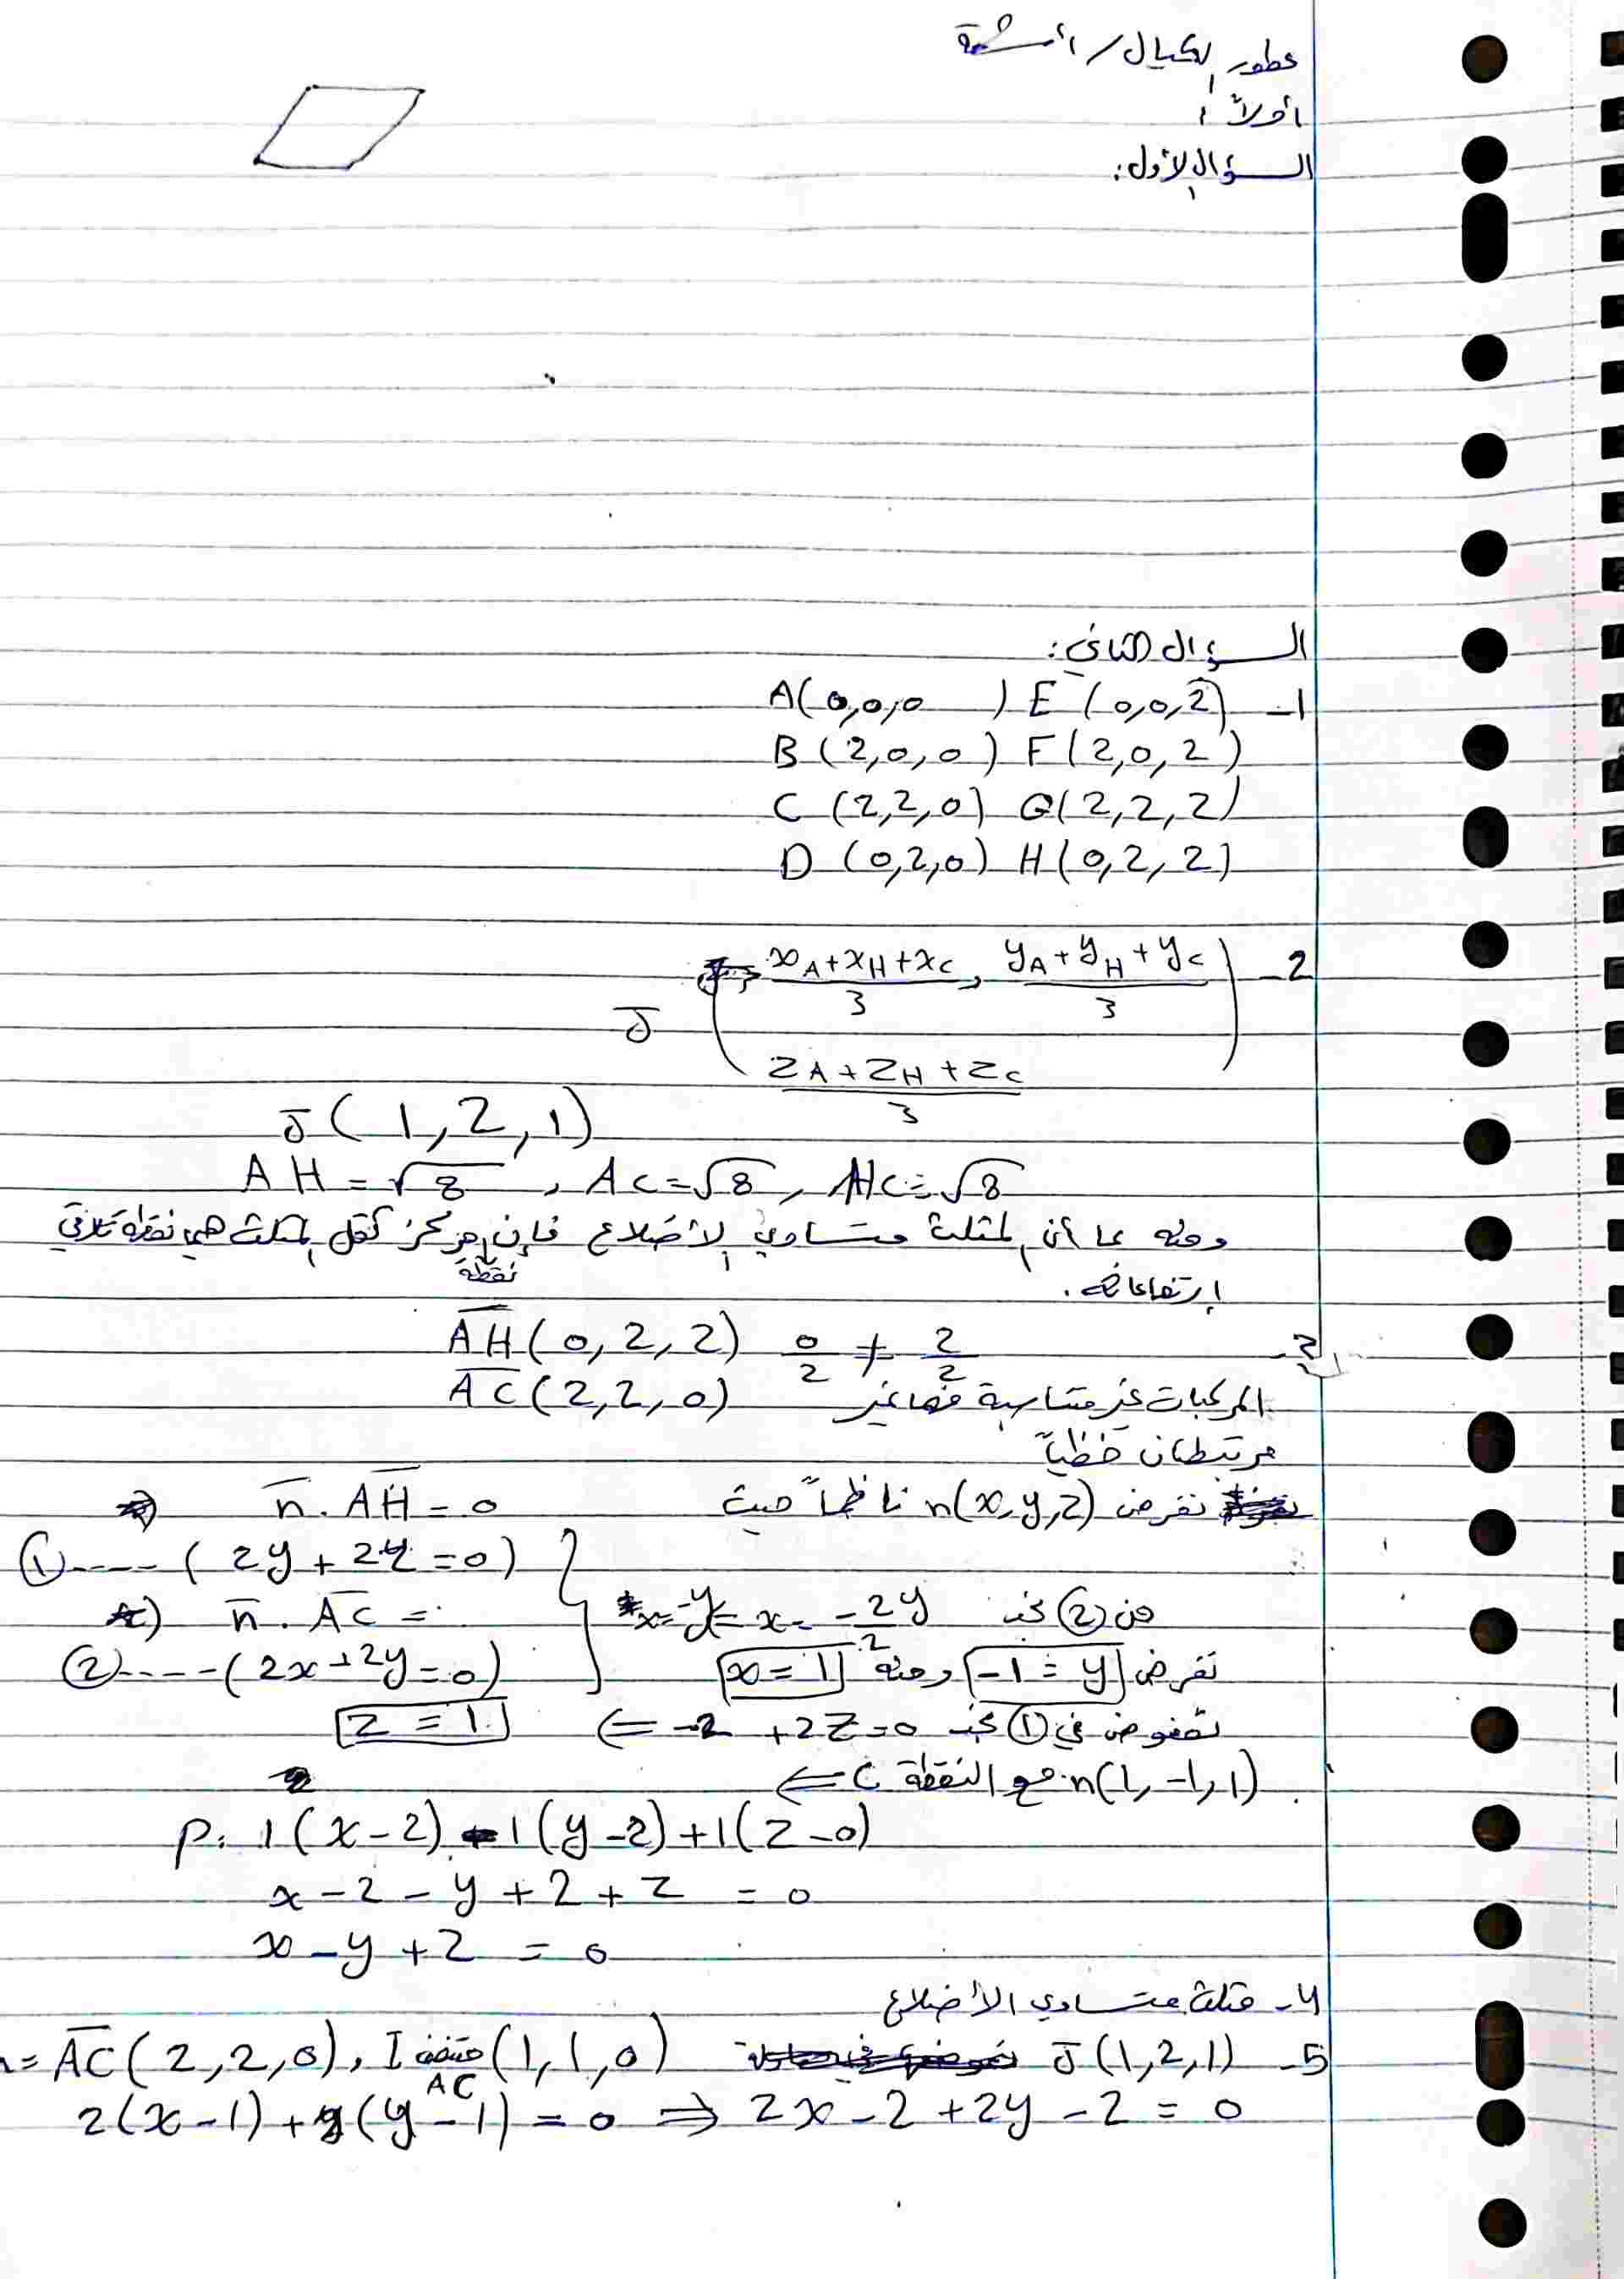 عطور الكيال / أتمتة
أولاً:
السؤال الأول:
السؤال الثاني:
1- A(0,0,0) E(0,0,2)
B(2,0,0) F(2,0,2)
C(2,2,0) G(2,2,2)
D(0,2,0) H(0,2,2)
2- J ( (x_A+x_H+x_C)/3 , (y_A+y_H+y_C)/3
(z_A+z_H+z_C)/3 )
J(1,2,1)
AH = √8 , AC = √8 , HC = √8
ومنه بما أن المثلث متساوي الأضلاع فإن نقطة مركز ثقل المثلث هي نقطة تلاقي
ارتفاعاته.
3- AH(0,2,2) 0/2 ≠ 2/2
AC(2,2,0) المركبات غير متناسبة فهما غير
مرتبطان خطياً
نفرض n(x,y,z) ناظماً حيث n . AH = 0
(2y + 2z = 0) ---- ①
n . AC = 0
(2x + 2y = 0) ---- ②
من ② نجد x = -2y/2 = x = -y
نفرض -1 = y ومنه x = 1
نعوض في ① نجد -2 + 2z = 0 ⇐ z = 1
n(1,-1,1) مع النقطة C ⇐
P: 1(x-2) -1(y-2) +1(z-0)
x - 2 - y + 2 + z = 0
x - y + z = 0
4- مثلث متساوي الأضلاع
5- J(1,2,1) I منتصف AC (1,1,0) , n = AC(2,2,0)
2(x-1) + 2(y-1) = 0 ⇒ 2x - 2 + 2y - 2 = 0